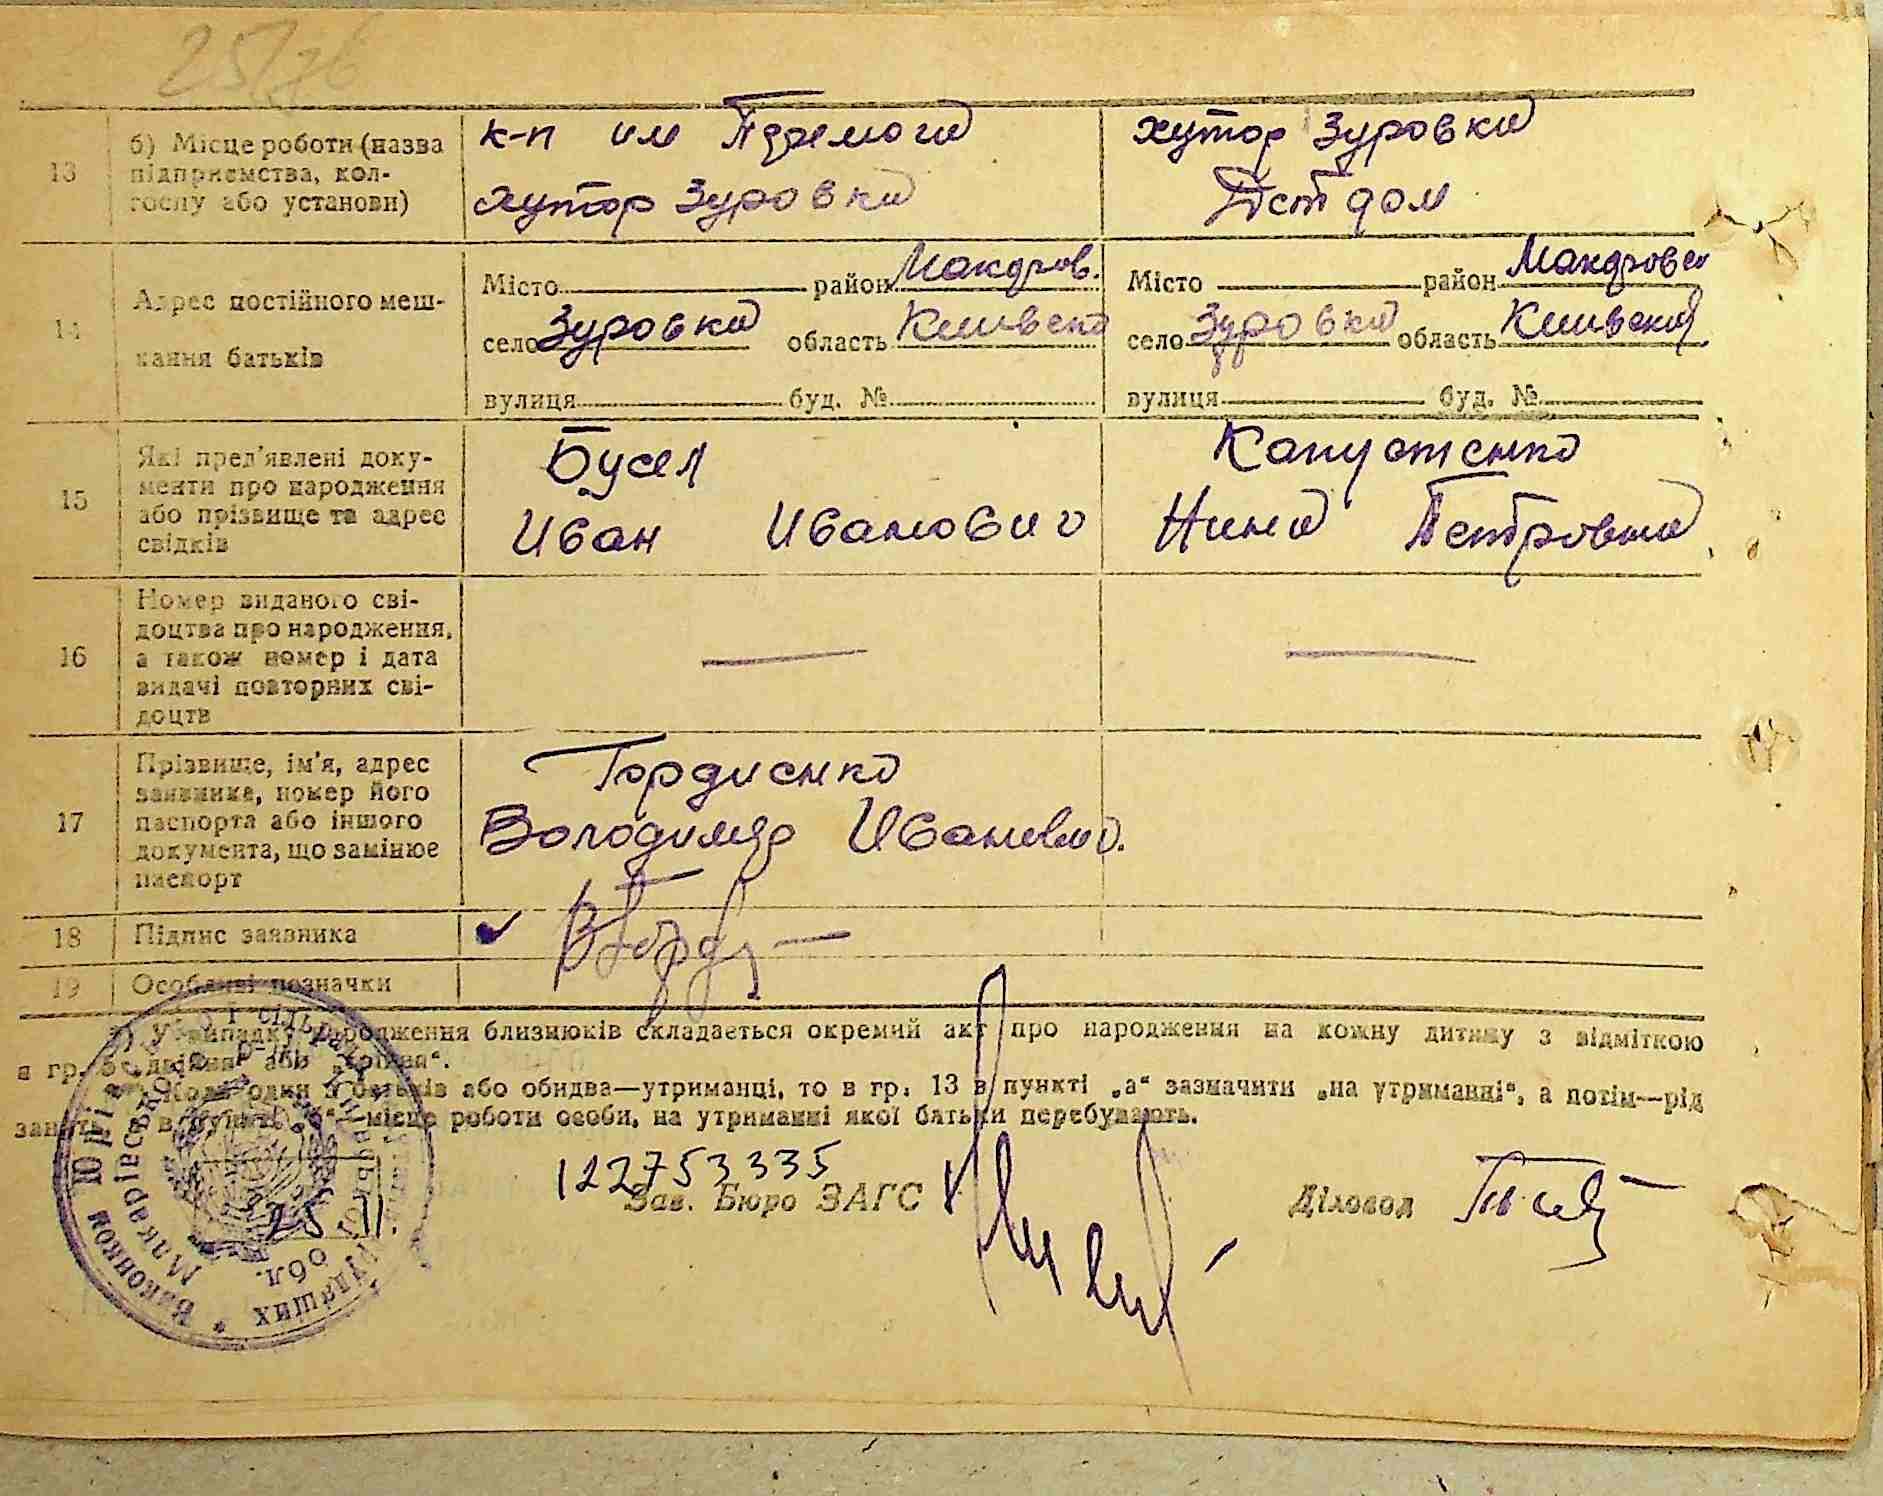 25/76
13
б) Місце роботи (назва підприємства, кол-
госпу або установи)
к-п им Пдремога
хутор Зуровка
хутор Зуровка
Дєтдом
14
Адрес постійного меш-
кання батьків
Місто район Макаров.
село Зуровка область Киивска
вулиця буд. №
Місто район Макаровск
село Зуровка область Киивския
вулиця буд. №
15
Які пред'явлені доку-
менти про народження
або прізвище та адрес
свідків
Бусел
Иван Иванович
Капустенко
Нина Петровна
16
Номер виданого сві-
доцтва про народження,
а також номер і дата
видачі повторних сві-
доцтв
17
Прізвище, ім'я, адрес
заявника, номер його
паспорта або іншого
документа, що замінює
паспорт
Гордиенко
Володимер Иванович.
18
Підпис заявника
19
Особливі позначки
*) У випадку народження близнюків складається окремий акт про народження на кожну дитину з відміткою
в гр. 5 „двійня" або „трійня".
Коли один з батьків або обидва—утриманці, то в гр. 13 в пункті „а" зазначити „на утриманні", а потім—рід
занять в пункті „б" місце роботи особи, на утриманні якої батьки перебувають.
122753335
Зав. Бюро ЗАГС
Діловод
Виконком
Макарівського
трудящих
обл.
25 11.